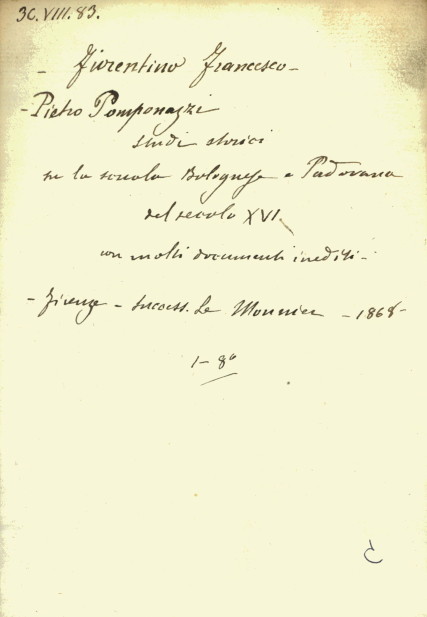 3C.VIII.83.
- Fiorentino Francesco -
- Pietro Pomponazzi
studi storici
su la scuola Bolognese e Padovana
del secolo XVI
con molti documenti inediti -
- Firenze - success. Le Monnier - 1868 -
1 - 8°